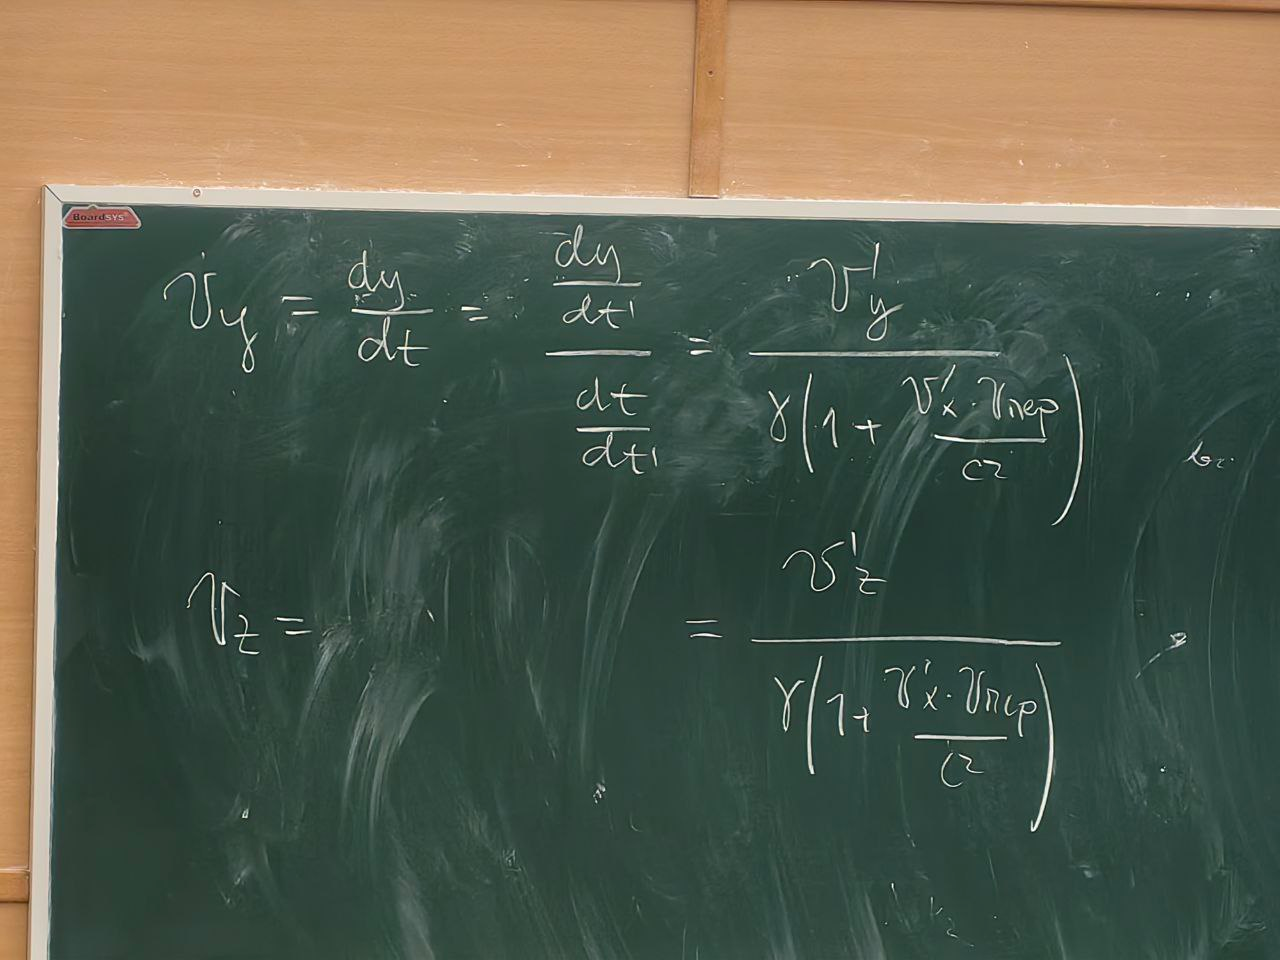 BoardSYS
v_y = dy/dt = (dy/dt')/(dt/dt') = v'_y / γ(1 + v'_x · v_пер / c²)
v_z = = v'_z / γ(1 + v'_x · v_пер / c²)